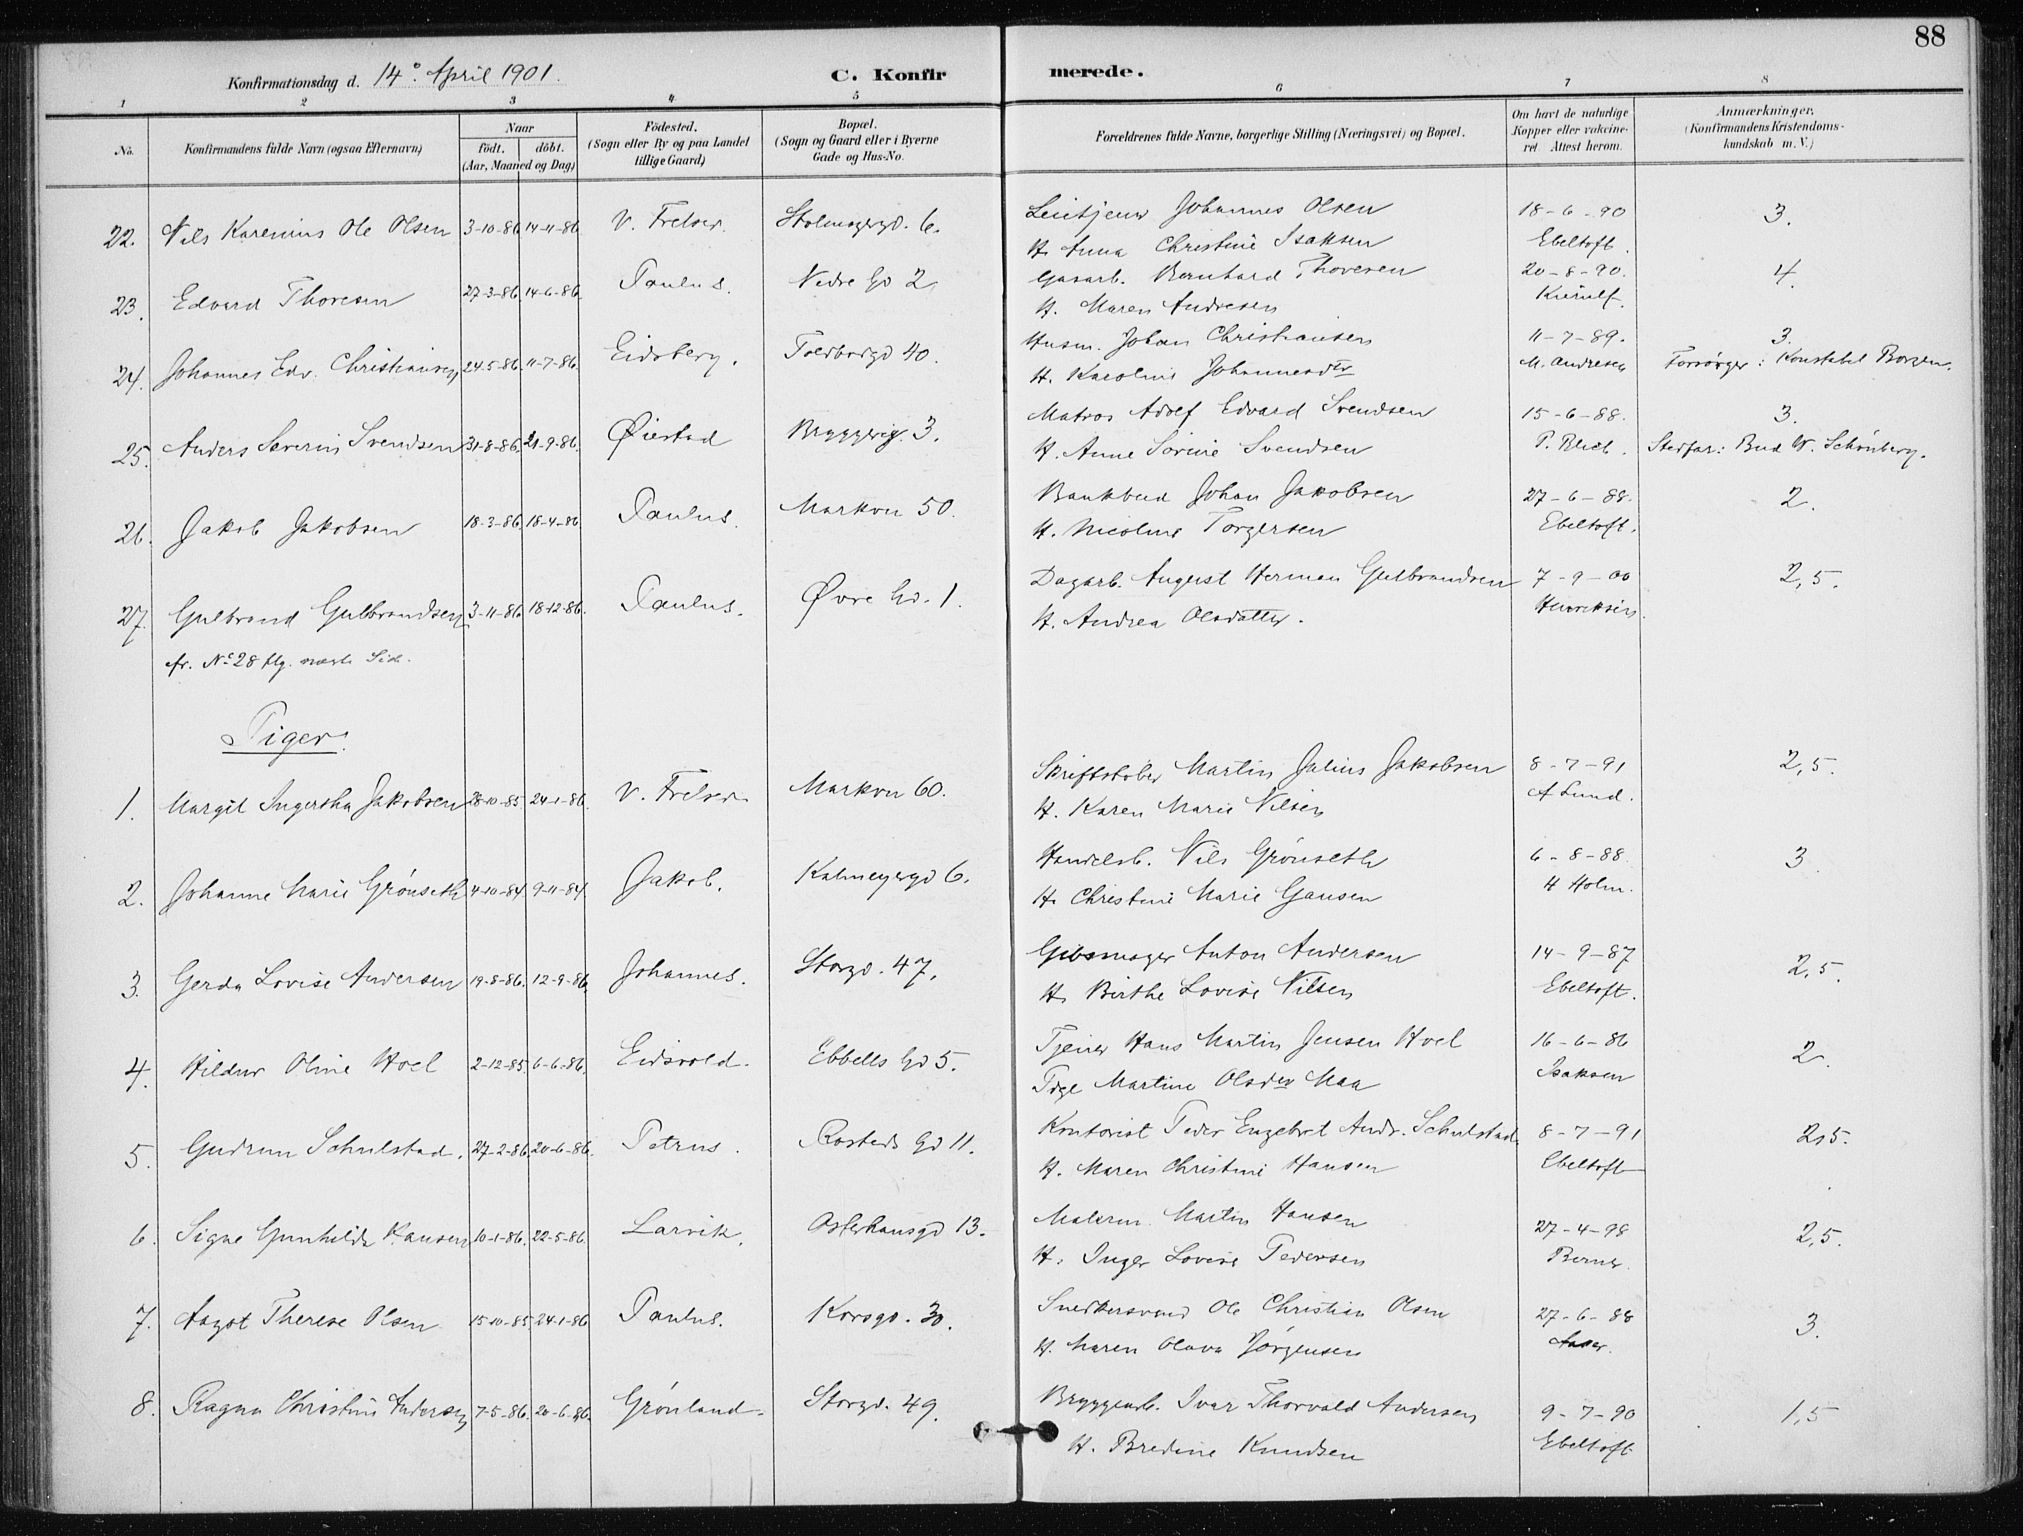 88
Konfirmationsdag d. 14° April 1901.
C. Konfirmerede.
1 2 3 4 5 6 7 8
No. Konfirmandens fulde Navn (ogsaa Efternavn)
Naar födt. döbt. (Aar, Maaned og Dag)
Födested. (Sogn eller By og paa Landet tillige Gaard)
Bopæl. (Sogn og Gaard eller i Byerne Gade og Hus-No.
Forældrenes fulde Navne, borgerlige Stilling (Næringsvei) og Bopæl.
Om havt de naturlige Kopper eller vakcineret Attest herom.
Anmærkninger. (Konfirmandens Kristendomskundskab m. V.)
22. Nils Karenius Ole Olsen 3-10-86 14-11-86 V. Frelser. Stolmagergd. 6. Johannes Olsen 18-6-90 3.
H. Anna Christine Isaksen Ebeltoft.
23. Edvard Thoresen 27-3-86. 14-6-86. Paulus. Nedre Gd 2 Gasarb. Bernhard Thoresen 20-8-90. 4.
H. Maren Andresen Kierulf.
24. Johannes Edv. Christiansen 24-5-86. 11-7-86. Eidsberg. Toldbodgd 40. Husm. Johan Christiansen 11-7-89. 3.
H. Karoline Johannesdtr M. Andresen Forsørger: Konstabel
25. Anders Severin Svendsen 31-8-86. 21-9-86. Øiestad Bryggerig. 3. Matros Adolf Edvard Svendsen 15-6-88. 3.
H. Anne Sorine Svendsen P. Blich. Stedfar: Bud W. Schönberg.
26. Jakob Jakobsen 18-3-86. 18-4-86. Paulus. Markvei 50. Bankbud Johan Jakobsen 27-6-88. 2.
H. Nicoline Torgersen Ebeltoft.
27. Gulbrand Gulbrandsen 3-11-86. 18-12-86. Paulus. Øvre Gd. 1. Dagarb. August Herman Gulbrandsen 7-9-00 2,5.
H. Andrea Olsdatter. Henriksen.
fr. No 28 flg. næste Side.
Piger.
1. Margit Ingertha Jakobsen 28-10-85. 24-1-86. V. Frelser. Markvei 60. Skriftstøber Martin Julius Jakobsen 8-7-91 2,5.
H. Karen Marie Nilsen A Lund.
2. Johanne Marie Grönseth 4-10-84. 9-11-84. Jakob. Kalmeyergd 6. Handelsb. Nils Grönseth 6-8-88. 3.
H. Christine Marie Gansen H Holm.
3. Gerda Lovise Andersen 19-8-86. 12-9-86. Johannes. Storgd. 47. Gibsmager Anton Andersen 14-9-87 2,5.
H. Birthe Lovise Nilsen Ebeltoft.
4. Hildur Oline Hoel 2-12-85. 6-6-86. Eidsvold. Ebbells Gd 5. Tjener Hans Martin Jensen Hoel 16-6-86 2.
Pige Martine Olsdtr Maa Isaksen
5. Gudrun Schulstad. 27-2-86. 20-6-86. Petrus. Rosteds Gd 11. Kontorist Peder Engebret Andr. Schulstad. 8-7-91 2,5.
H. Maren Christine Hansen Ebeltoft
6. Signe Gunhilda Hansen 10-1-86. 22-5-86. Larvik. Osterhausgd 13. Malerm. Martin Hansen 27-4-98 2,5.
H. Inger Lovise Pedersen Berner.
7. Aagot Therese Olsen 15-10-85. 24-1-86. Paulus. Korsgd. 30. Snedkersvend Ole Christian Olsen 27-6-88 3.
H. Maren Olava Jörgensen
8. Ragna Christine Andersen 7-5-86. 20-6-86. Grönland. Storgd. 49. Bryggeriarb. Ivar Thorvald Andersen 9-7-90 1,5
H. Bredine Knudsen Ebeltoft